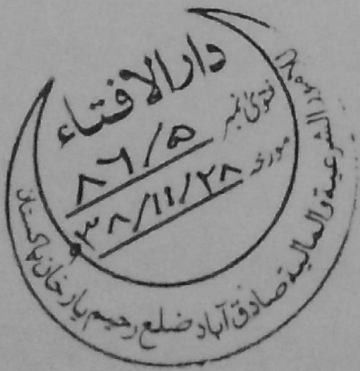 دار الافتاء
فتویٰ نمبر ۸۶/۵
مورخہ ۳۸/۱۱/۲۸
الشرعیة والمالیة صادق آباد ضلع رحیم یار خان پاکستان